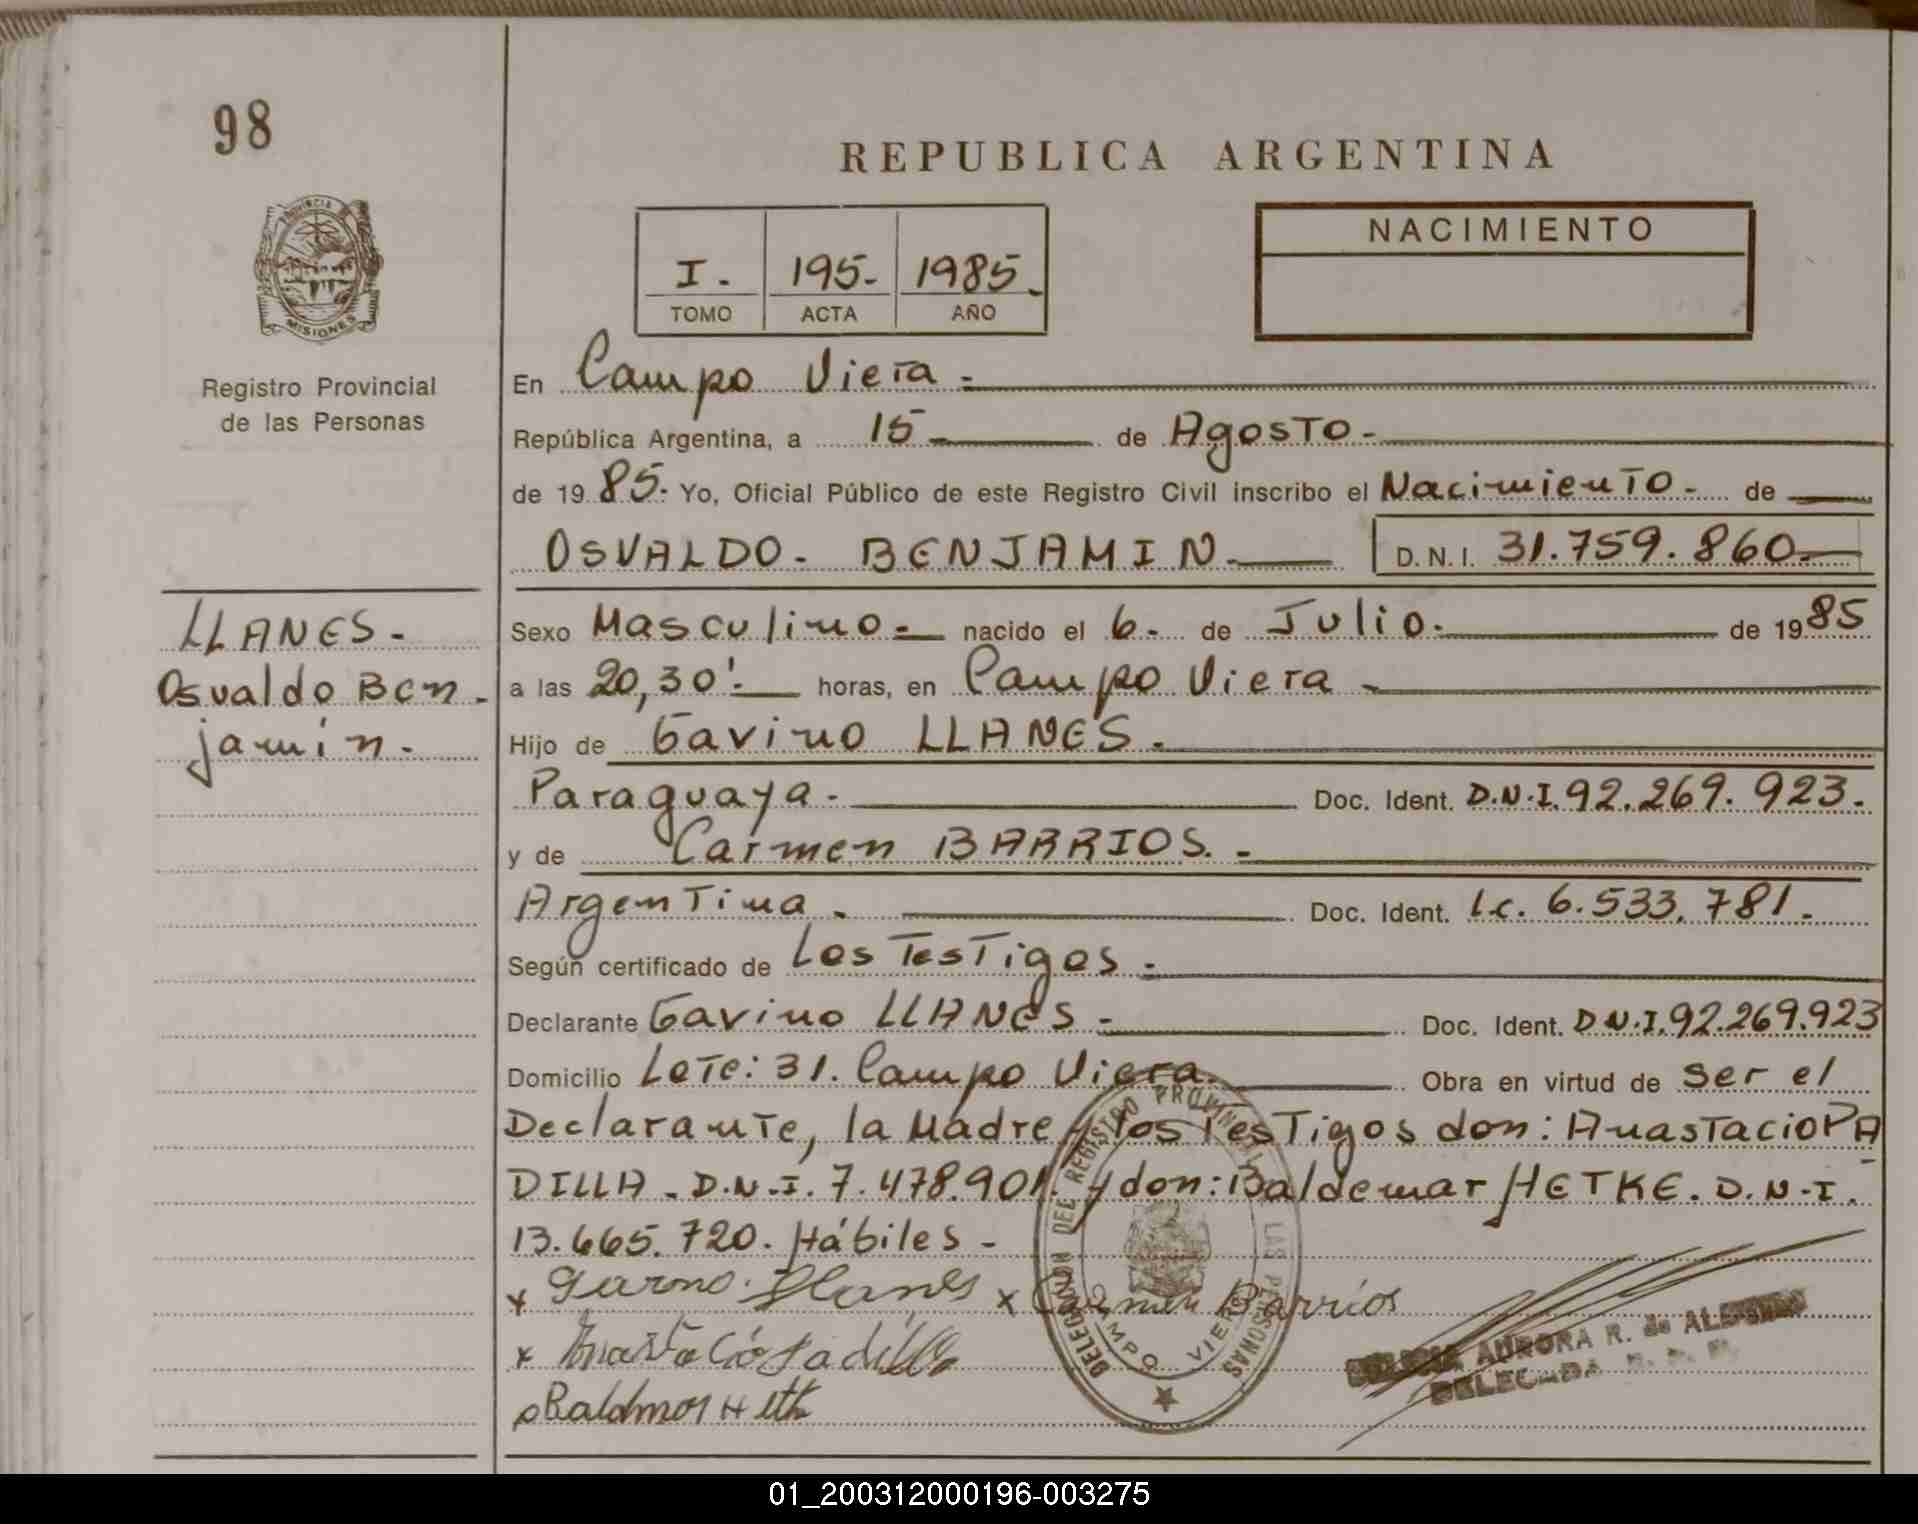 98
REPUBLICA ARGENTINA
PROVINCIA DE
MISIONES
Registro Provincial
de las Personas
I.- 195- 1985.-
TOMO ACTA AÑO
NACIMIENTO
En Campo Viera -
República Argentina, a 15- de Agosto-
de 1985. Yo, Oficial Público de este Registro Civil inscribo el Nacimiento- de
OSVALDO- BENJAMIN- D. N. I. 31.759.860-
LLANES-
Osvaldo Ben-
jamin-
Sexo Masculino- nacido el 6- de Julio- de 1985
a las 20,30'- horas, en Campo Viera -
Hijo de Gavino LLANES.-
Paraguaya- Doc. Ident. D.N.I. 92.269.923-
y de Carmen BARRIOS.-
Argentina- Doc. Ident. L.c. 6.533.781-
Según certificado de Los Testigos-
Declarante Gavino LLANES- Doc. Ident. D.N.I. 92.269.923
Domicilio Lote: 31. Campo Viera- Obra en virtud de ser el
Declarante, la Madre y los Testigos don: Anastacio PA
DILLA- D.N.I. 7.478.901. y don: Baldemar HETKE. D.N.I.
13.665.720. Hábiles-
x Llanes x Carmen Barrios
x Anastacio Padilla
DELEGACION DEL REGISTRO PROVINCIAL DE LAS PERSONAS
CAMPO VIERA
AURORA R. de
DELEGADA
01_200312000196-003275